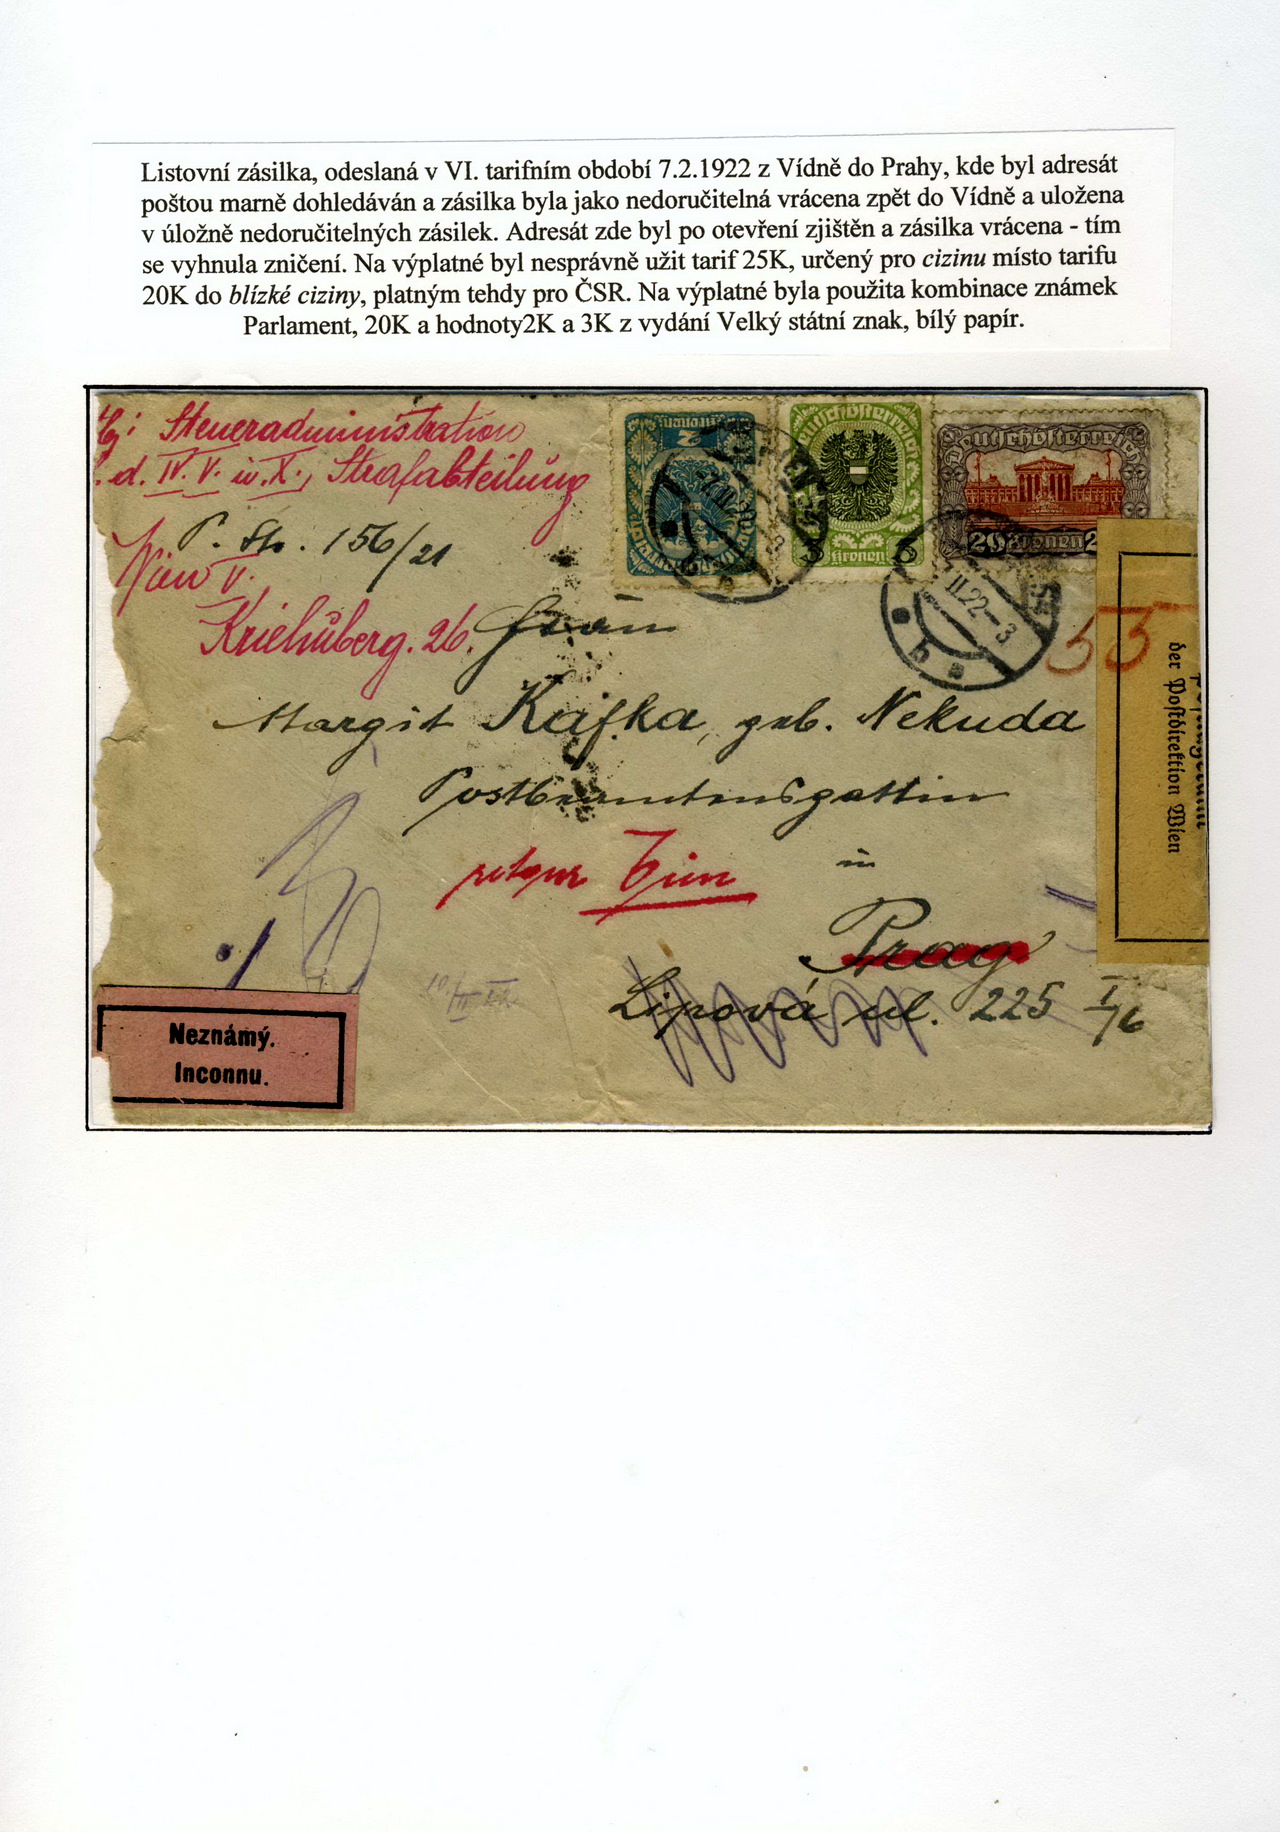 Listovní zásilka, odeslaná v VI. tarifním období 7.2.1922 z Vídně do Prahy, kde byl adresát
poštou marně dohledáván a zásilka byla jako nedoručitelná vrácena zpět do Vídně a uložena
v úložně nedoručitelných zásilek. Adresát zde byl po otevření zjištěn a zásilka vrácena - tím
se vyhnula zničení. Na výplatné byl nesprávně užit tarif 25K, určený pro cizinu místo tarifu
20K do blízké ciziny, platným tehdy pro ČSR. Na výplatné byla použita kombinace známek
Parlament, 20K a hodnoty2K a 3K z vydání Velký státní znak, bílý papír.
Steueradministration
d. IV. V. u. X., Strafabteilung
P. St. 156/21
Wien V.
Kriehuberg. 26.
2
Deutschösterreich
3 Kronen
Deutschösterreich
20 Kronen 2
II.22-3
b
53
der Postdirektion Wien
Frau
Margit Kafka, geb. Nekuda
Postbeamtensgattin
in
retour
Prag
Lipová ul. 225 I/76
Neznámý.
Inconnu.